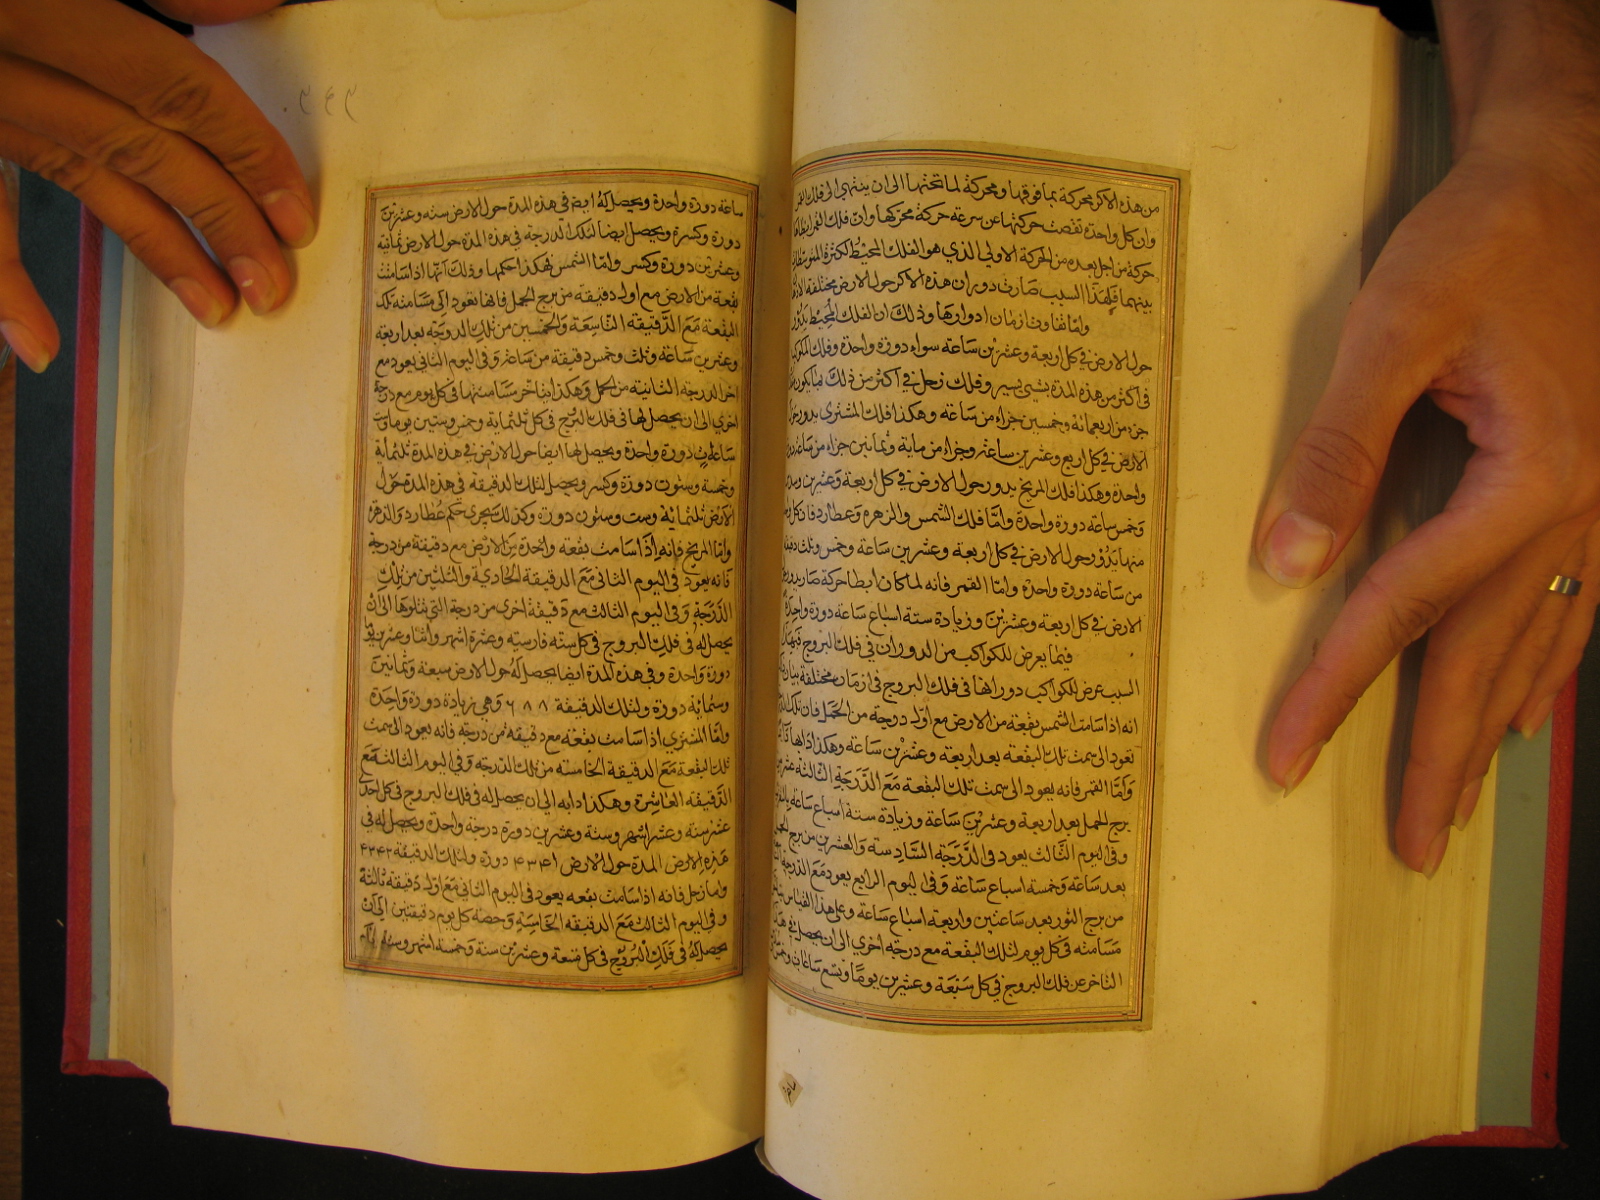 من هذه الاكر محركة بما فوقها ومحركة لما تحتها الى ان ينتهي الى فلك القمر
وان كل واحدة نقصت حركتها عن سرعة حركة محركها وان فلك القمر ابطاها
حركة من اجل بعده من الحركة الاولى الذي هو الفلك المحيط لكثرة المتوسطات
بينهما فلهذا السبب صارت دوران هذه الاكر حول الارض مختلفة الازمان
واما تفاوت ازمان ادوارها وذلك ان الفلك المحيط يدور
حول الارض في كل اربعة وعشرين ساعة سواء دورة واحدة وفلك الكواكب
في اكثر من هذه المدة بشيئ يسير وفلك زحل في اكثر من ذلك بما يكون
جزء من اربعمائة وخمسين جزاء من ساعة وهكذا فلك المشترى يدور حول
الارض في كل اربع وعشرين ساعة وجزاء من ماية وثمانين جزاء من ساعة دورة
واحدة وهكذا فلك المريخ يدور حول الارض في كل اربعة وعشرين
وخمس ساعة دورة واحدة واما فلك الشمس والزهرة وعطارد فان كل واحد
منها يدور حول الارض في كل اربعة وعشرين ساعة وخمس وثلث دقيقة
من ساعة دورة واحدة واما القمر فانه لما كان ابطا حركة صار يدور حول
الارض في كل اربعة وعشرين وزيادة ستة اسباع ساعة دورة واحدة
فيما يعرض للكواكب من الدوران في فلك البروج فبهذا
السبب عرض للكواكب دورانها في فلك البروج في ازمان مختلفة بيان
انه اذا سامت الشمس بقعة من الارض مع اول درجة من الحمل فان تلك
تعود الى سمت تلك البقعة بعد اربعة وعشرين ساعة وهكذا دابها
واما القمر فانه يعود الى سمت تلك البقعة مع الدرجة الثالثة عشر من
برج الحمل بعد اربعة وعشرين ساعة وزيادة ستة اسباع ساعة
وفي اليوم الثالث يعود في الدرجة السادسة والعشرين من برج الحمل
بعد ساعة وخمسة اسباع ساعة وفي اليوم الرابع يعود مع الدرجة
من برج الثور بعد ساعتين واربعة اسباع ساعة وعلى هذا القياس
مسامته في كل يوم لتلك البقعة مع درجة اخرى الى ان يحصل في هذا
التاخر عن فلك البروج في كل سبعة وعشرين يوما وتسع ساعات
٣٤٣
ساعة دورة واحدة ويحصل له ايضا في هذه المدة حول الارض ستة وعشرين
دورة وكسرة ويحصل ايضا لتلك الدرجة في هذه المدة حول الارض ثمانية
وعشرين دورة وكسر واما الشمس فهكذا حكمها وذلك انها اذا سامتت
بقعة من الارض مع اول دقيقة من برج الحمل فانها تعود الى مسامتة تلك
البقعة مع الدقيقة التاسعة والخمسين من تلك الدرجة بعد اربعة
وعشرين ساعة وثلث وخمس دقيقة من ساعة وفي اليوم الثاني يعود مع
اخر الدرجة الثانية من الحمل وهكذا يتاخر مسامتتها في كل يوم مع درجة
اخرى الى ان يحصل لها في فلك البرج في كل ثلثماية وخمس وستين يوما وست
ساعات دورة واحدة ويحصل لها ايضا حول الارض في هذه المدة ثلثماية
وخمسة وستون دورة وكسر ويحصل لتلك الدقيقة في هذه المدة حول
الارض ثلثماية وست وستون دورة وكذلك يجرى حكم عطارد والزهرة
واما المريخ فانه اذا سامت بقعة واحدة من الارض مع دقيقة من درجة
فانه يعود في اليوم الثاني مع الدقيقة الحادية والثلثين من تلك
الدرجة وفي اليوم الثالث مع دقيقة اخرى من درجة التي يتلوها الى ان
يحصل له في فلك البروج في كل سنة فارسية وعشرة اشهر واثنا وعشرين يوما
دورة واحدة وفي هذه المدة ايضا يحصل له حول الارض سبعة وثمانين
وستمائة دورة ولتلك الدقيقة ٦٨٨ وهي زيادة دورة واحدة
واما المشتري اذا سامت بقعة مع دقيقة من درجة فانه يعود الى سمت
تلك البقعة مع الدقيقة الخامسة من تلك الدرجة وفي اليوم الثالث مع
الدقيقة العاشرة وهكذا دابه الى ان يحصل له في فلك البروج في كل احد
عشر سنة وعشر اشهر وستة وعشرين دورة درجة واحدة ويحصل له في
هذه الارض المدة حول الارض ٤٣٤١ دورة ولتلك الدقيقة ٤٣٤٢
واما زحل فانه اذا سامت بقعه يعود في اليوم الثاني مع اول دقيقة ثالثة
وفي اليوم الثالث مع الدقيقة الخامسة وحصة كل يوم دقيقتين الى ان
يحصل له في فلك البروج في كل تسعة وعشرين سنة وخمسة اشهر وستة ايام